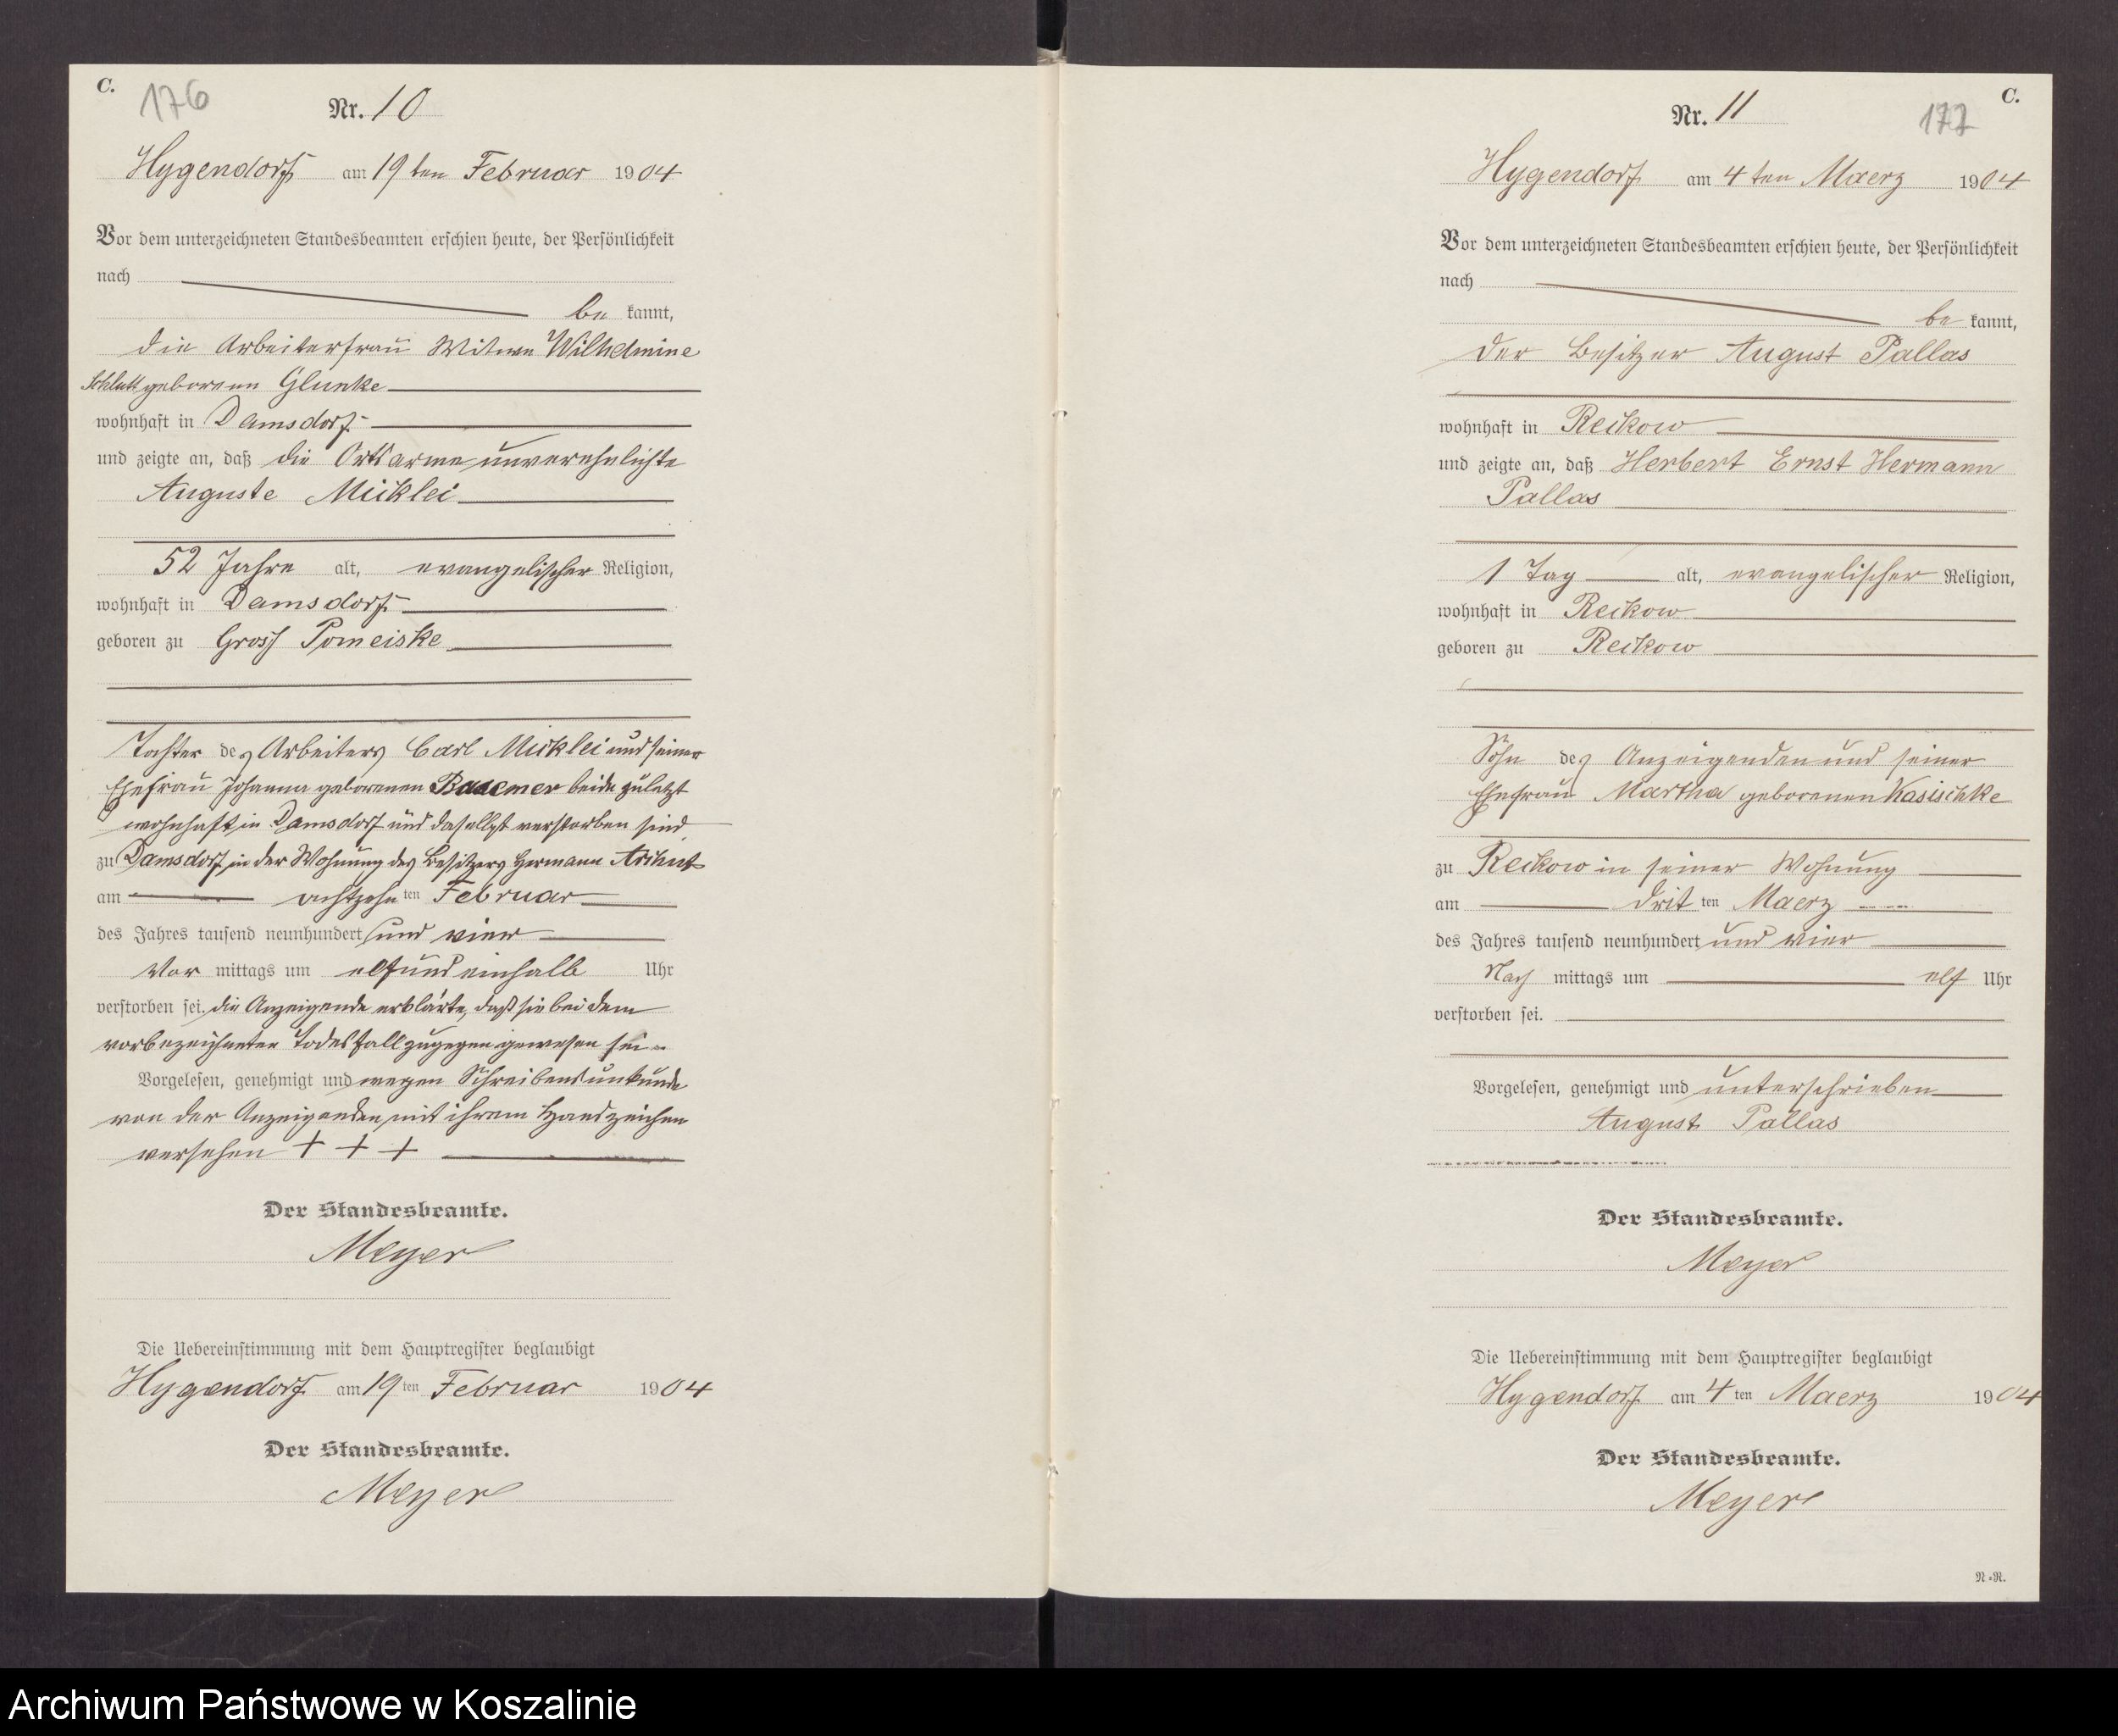 C.
176
Nr. 10
Hygendorf am 19ten Februar 1904
Vor dem unterzeichneten Standesbeamten erschien heute, der Persönlichkeit
nach
be kannt,
die Arbeiterfrau Witwe Wilhelmine
geborenen Glunke
wohnhaft in Damsdorf
und zeigte an, daß die Ortsarme unverehelichte
Auguste Micklei
52 Jahre alt, evangelischer Religion,
wohnhaft in Damsdorf
geboren zu Gross Pomeiske
Tochter des Arbeiters Carl Micklei und seiner
Ehefrau Johanna geborenen beide zuletzt
wohnhaft in Damsdorf und daselbst verstorben sind,
zu Damsdorf, in der Wohnung des Besitzers Hermann
am achtzehnten Februar
des Jahres tausend neunhundert und vier
Vor mittags um elf und einhalb Uhr
verstorben sei. die Anzeigende erklärte, daß sie bei dem
vorbezeichneten Todesfall zugegen gewesen sei.
Vorgelesen, genehmigt und wegen Schreibensunkunde
von der Anzeigenden mit ihrem Handzeichen
versehen + + +
Der Standesbeamte.
Meyer
Die Uebereinstimmung mit dem Hauptregister beglaubigt
Hygendorf am 19ten Februar 1904
Der Standesbeamte.
Meyer
C.
177
Nr. 11
Hygendorf am 4ten Maerz 1904
Vor dem unterzeichneten Standesbeamten erschien heute, der Persönlichkeit
nach
be kannt,
der Besitzer August Pallas
wohnhaft in Reckow
und zeigte an, daß Herbert Ernst Hermann
Pallas
1 Tag alt, evangelischer Religion,
wohnhaft in Reckow
geboren zu Reckow
Sohn des Anzeigenden und seiner
Ehefrau Martha geborenen Kasischke
zu Reckow in seiner Wohnung
am dritten Maerz
des Jahres tausend neunhundert und vier
Nach mittags um elf Uhr
verstorben sei.
Vorgelesen, genehmigt und unterschrieben
August Pallas
Der Standesbeamte.
Meyer
Die Uebereinstimmung mit dem Hauptregister beglaubigt
Hygendorf am 4ten Maerz 1904
Der Standesbeamte.
Meyer
N=R.
Archiwum Państwowe w Koszalinie